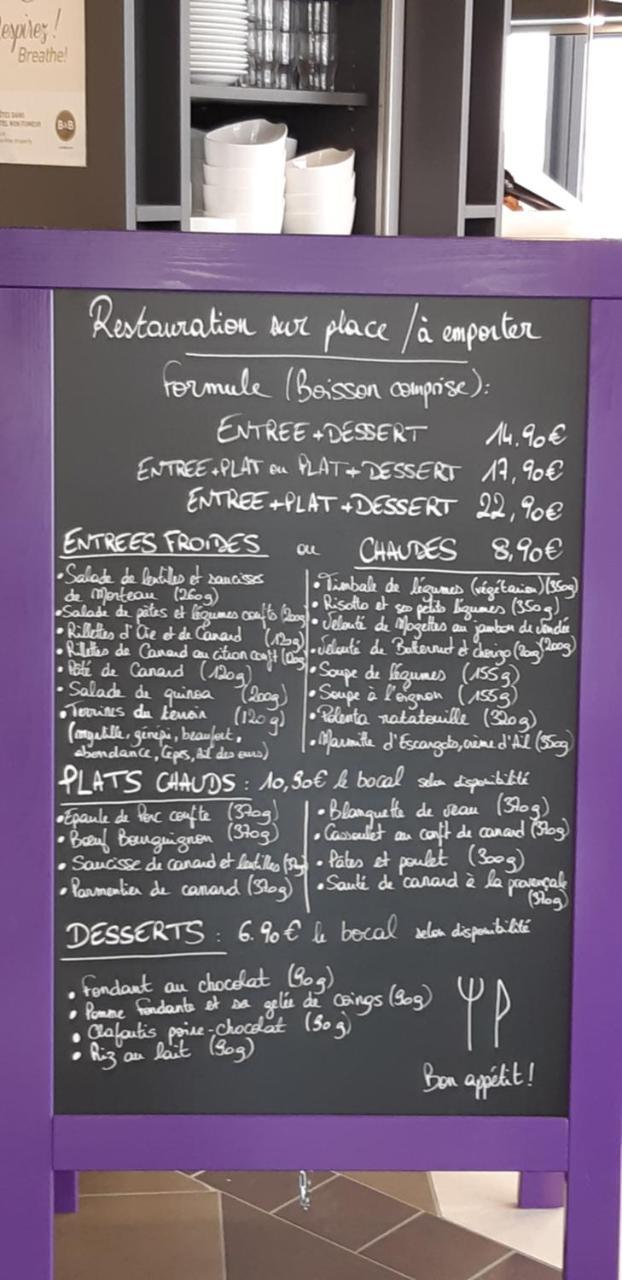 espirez!
Breathe!
B&B
Restauration sur place / à emporter
Formule (Boisson comprise):
ENTREE + DESSERT 14,90€
ENTREE + PLAT ou PLAT + DESSERT 17,90€
ENTREE + PLAT + DESSERT 22,90€
ENTREES FROIDES ou CHAUDES 8,90€
• Salade de lentilles et saucisses
de Morteau (260g)
• Salade de pâtes et légumes confits (200g)
• Rillettes d'Oie et de Canard (120g)
• Rillettes de Canard au citron confit (120g)
• Pâté de Canard (120g)
• Salade de quinoa (200g)
• Terrines du terroir (120g)
(myrtille, génépi, beaufort,
abondance, Cèpes, Ail des ours)
• Timbale de légumes (végétarien) (350g)
• Risotto et ses petits légumes (350g)
• Velouté de Mogettes au jambon de vendée
(200g)
• Velouté de Butternut et chorizo
• Soupe de légumes (155g)
• Soupe à l'oignon (155g)
• Polenta ratatouille (320g)
• Marmitte d'Escargots, crème d'Ail (350g)
PLATS CHAUDS : 10,90€ le bocal selon disponibilité
• Epaule de Porc confite (370g)
• Bœuf Bourguignon (370g)
• Saucisse de canard et lentilles
• Parmentier de canard (370g)
• Blanquette de veau (370g)
• Cassoulet au confit de canard (370g)
• Pâtes et poulet (300g)
• Sauté de canard à la provençale
(370g)
DESSERTS : 6.90€ le bocal selon disponibilité
• Fondant au chocolat (90g)
• Pomme fondante et sa gelée de coings (90g)
• Clafoutis poire-chocolat (90g)
• Riz au lait (90g)
Bon appétit!